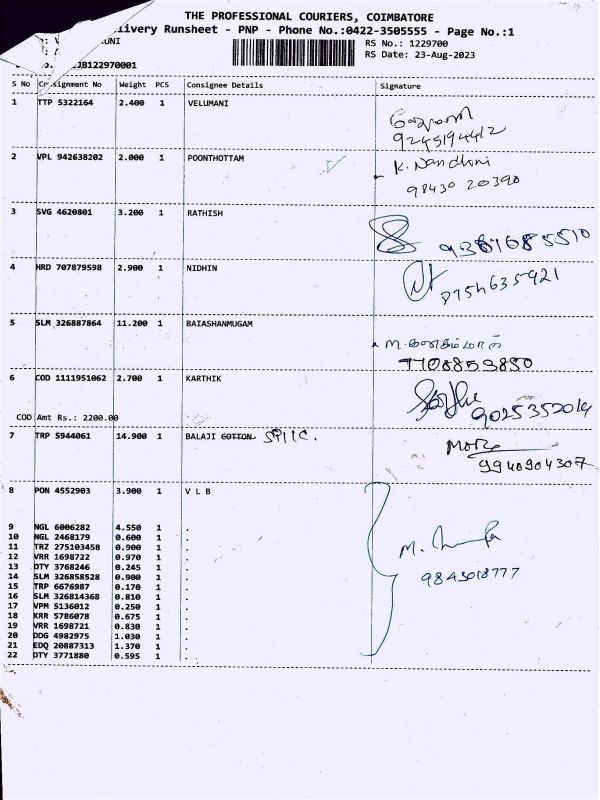 THE PROFESSIONAL COURIERS, COIMBATORE
Delivery Runsheet - PNP - Phone No.:0422-3505555 - Page No.:1
RS No.: 1229700
RS Date: 23-Aug-2023
JB122970001
S No Consignment No Weight PCS Consignee Details Signature
1 TTP 5322164 2.400 1 VELUMANI
9245194412
2 VPL 942638202 2.000 1 POONTHOTTAM K. Nandhini
98430 20390
3 SVG 4620801 3.200 1 RATHISH
9361685510
4 HRD 707879598 2.900 1 NIDHIN
8754635921
5 SLM 326887864 11.200 1 BAIASHANMUGAM
7708853850
6 COD 1111951062 2.700 1 KARTHIK
9025352014
COD Amt Rs.: 2200.00
7 TRP 5944061 14.900 1 BALAJI COTTON
9940904307
8 PON 4552903 3.900 1 V L B
9 NGL 6006282 4.550 1 .
10 NGL 2468179 0.600 1 .
11 TRZ 275103458 0.900 1 .
12 VRR 1698722 0.970 1 .
13 DTY 3768246 0.245 1 .
14 SLM 326858528 0.900 1 .
15 TRP 6676987 0.170 1 .
16 SLM 326814368 0.810 1 .
9843018777
17 VPM 5136012 0.250 1 .
18 KRR 5786078 0.675 1 .
19 VRR 1698721 0.830 1 .
20 DDG 4982975 1.030 1 .
21 EDQ 20887313 1.370 1 .
22 DTY 3771880 0.595 1 .